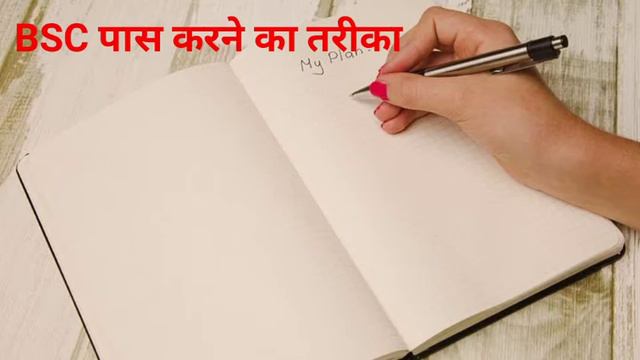 BSC पास करने का तरीका
My Plan: